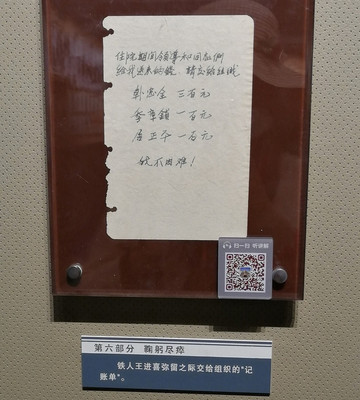 住院期间领导和同志们
给我送来的钱，请交给组织
三百元
李 一百元
一百元
我不困难！
扫一扫 听讲解
第六部分 鞠躬尽瘁
铁人王进喜弥留之际交给组织的“记
账单”。